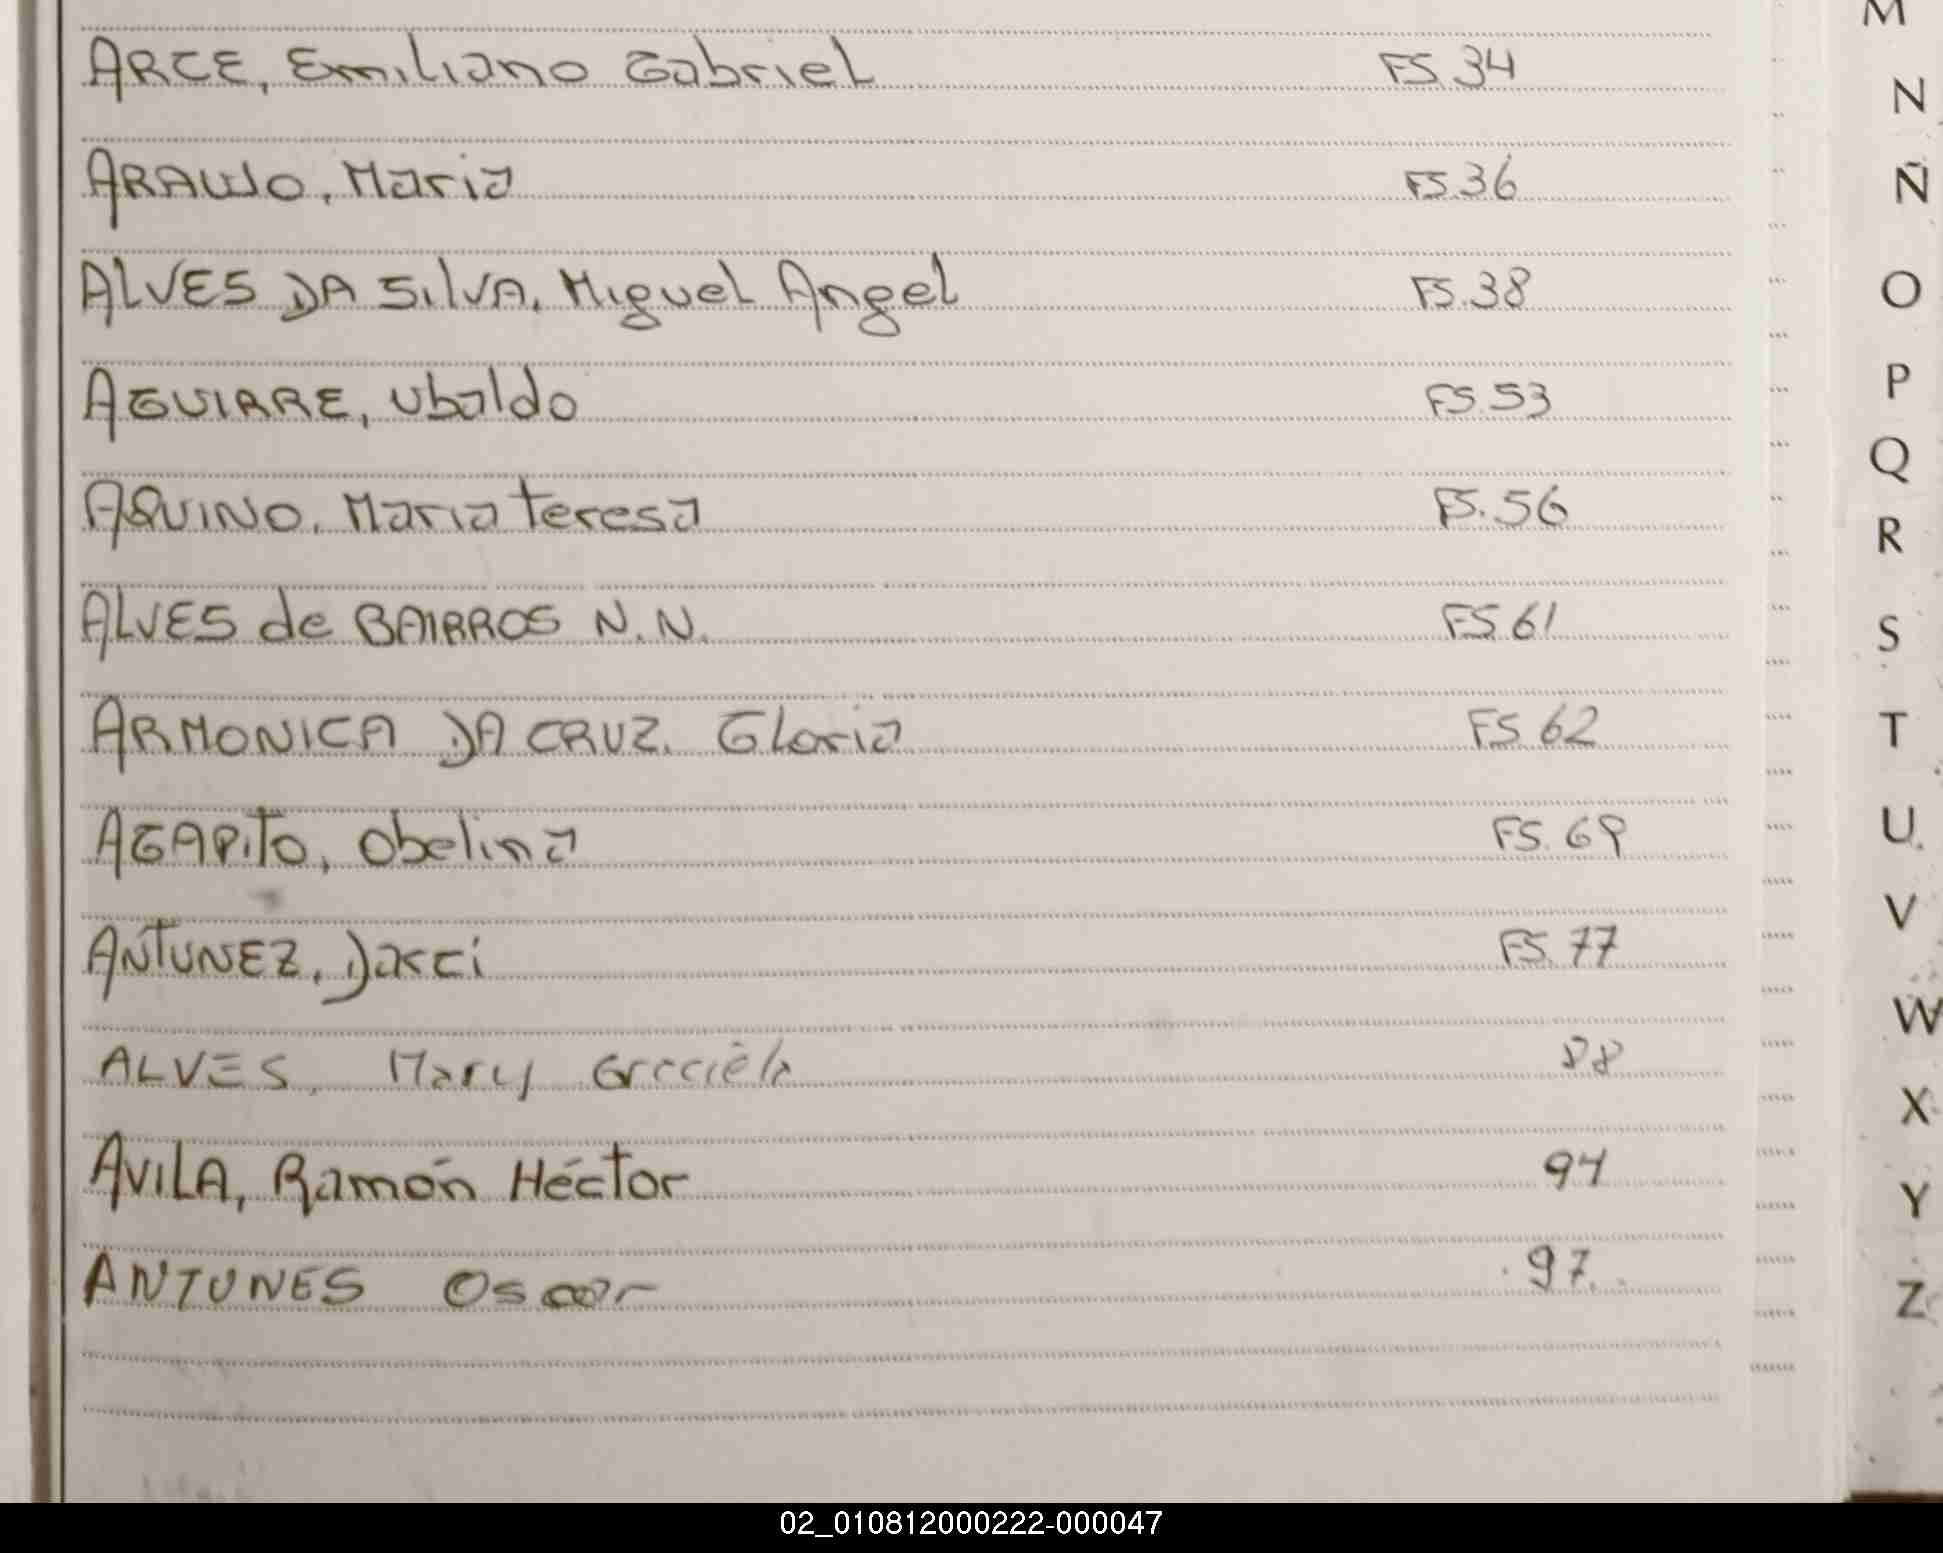 ARCE, Emiliano Gabriel FS.34
ARAUJO, Maria FS.36
ALVES DA SILVA, Miguel Angel FS.38
AGUIRRE, Ubaldo FS.53
AQUINO, Maria Teresa FS.56
ALVES de BAIRROS N.N. FS.61
ARMONICA DA CRUZ, Gloria FS.62
AGAPITO, Obelina FS.69
ANTUNEZ, Darci FS.77
ALVES, Mary Graciela 88
AVILA, Ramón Héctor 94
ANTUNES Oscar 97
M
N
Ñ
O
P
Q
R
S
T
U
V
W
X
Y
Z
02_010812000222-000047